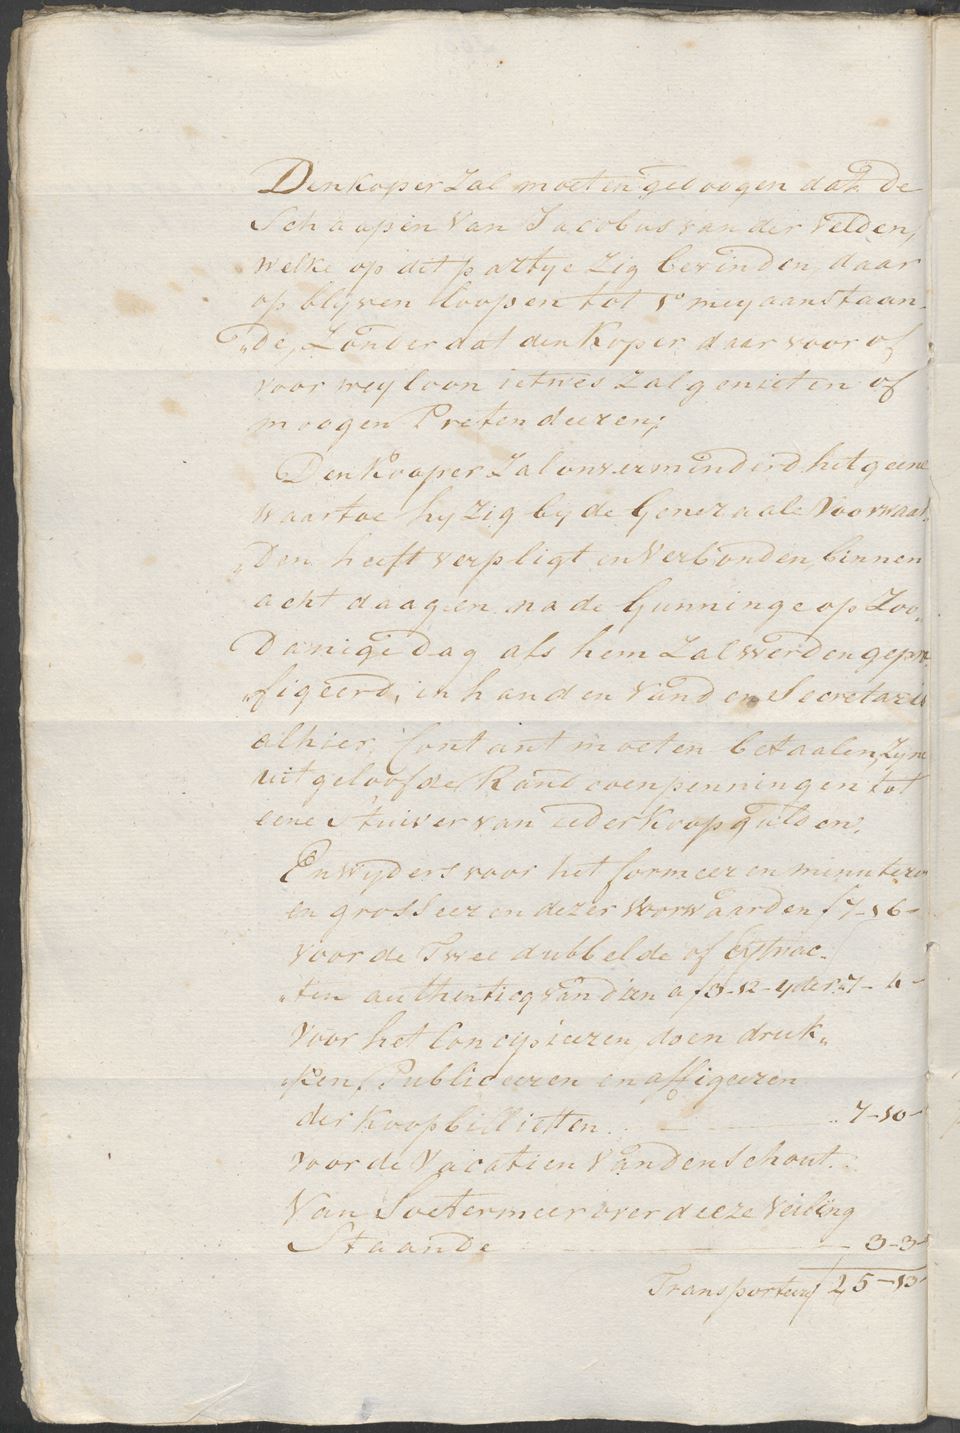 Den koper Zal moeten gedoogen dat de
Schaapen Van Jacobus van der Velden,
welke op dit partye Zig bevinden, daar
op blyven loopen tot 1o mey aanstaan„
„de, Zonder dat den Koper daar voor of
voor weyloon ietwes Zal genieten of
moogen Pretendeeren;
Den Kooper Zal onverminderd hetgeene
waartoe hy Zig by de Generaale Voorwaar„
„Den heeft verpligt en Verbonden, binnen
acht daagen na de Gunninge op Zoo„
Danige Dag als hem Zal werden gepre„
„figeerd, in handen Van den Secretaris
alhier, Contant moeten betaalen, Zyne
uitgeloofde Rantsoenpenningen tot
eene Stuiver van ieder Koopgulden.
En wyders voor het formeeren minuteren
en grosseeren dezer voorwaarden f 7-16-
voor de Twee dubbelde of Extrac„
„ten authenticq van dien a f3-12-4 der 7-4-
Voor het Concipieeren, doen druk„
„ken, Publiceeren en affigeeren
der Koopbilletten . . . 7-10-
voor de Vacatien Van den Schout
Van Soetermeer over deeze Veiling
Staande 3-3-
Transporteere f 25-13-